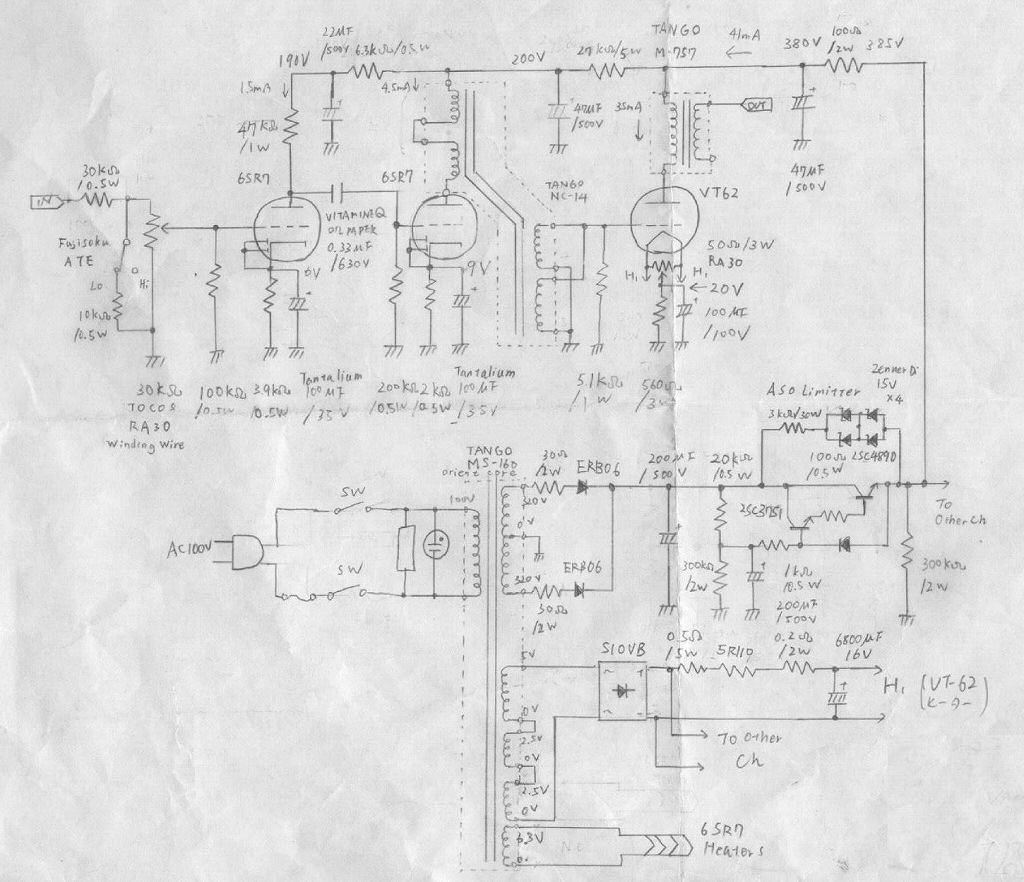 TANGO
M-757
22μF
/500V
6.3kΩ/0.5W
190V
200V
27kΩ/5W
41mA
380V
100Ω
/2W
385V
1.5mA
4.5mA
47μF
/500V
35mA
OUT
47μF
/500V
47kΩ
/1W
30kΩ
/0.5W
IN
6SR7
6SR7
TANGO
NC-14
VT62
VITAMINEQ
OILPAPER
0.33μF
/630V
50Ω/3W
RA30
Fujisoku
ATE
Lo
Hi
10kΩ
/0.5W
6V
9V
H1
H1
20V
100μF
/100V
30kΩ
TOCOS
RA30
Winding Wire
100kΩ
/0.5W
3.9kΩ
/0.5W
Tantalium
100μF
/35V
200kΩ
/0.5W
2kΩ
/0.5W
Tantalium
100μF
/35V
5.1kΩ
/1W
560Ω
/3W
ASO Limitter
Zenner Di
15V
×4
3kΩ/30W
TANGO
MS-160
orient core
30Ω
/2W
ERB06
200μF
/500V
20kΩ
/0.5W
100Ω
/0.5W
2SC4890
SW
100V
0V
To
Other Ch
AC100V
2SC3751
SW
320V
ERB06
30Ω
/2W
300kΩ
/2W
1kΩ
/0.5W
200μF
/500V
300kΩ
/2W
5V
S10VB
0.5Ω
/5W
5R/10
0.2Ω
/2W
6800μF
16V
H1
(VT-62
ヒーター)
0V
2.5V
0V
2.5V
0V
To Other
Ch
6.3V
NC
6SR7
Heaters